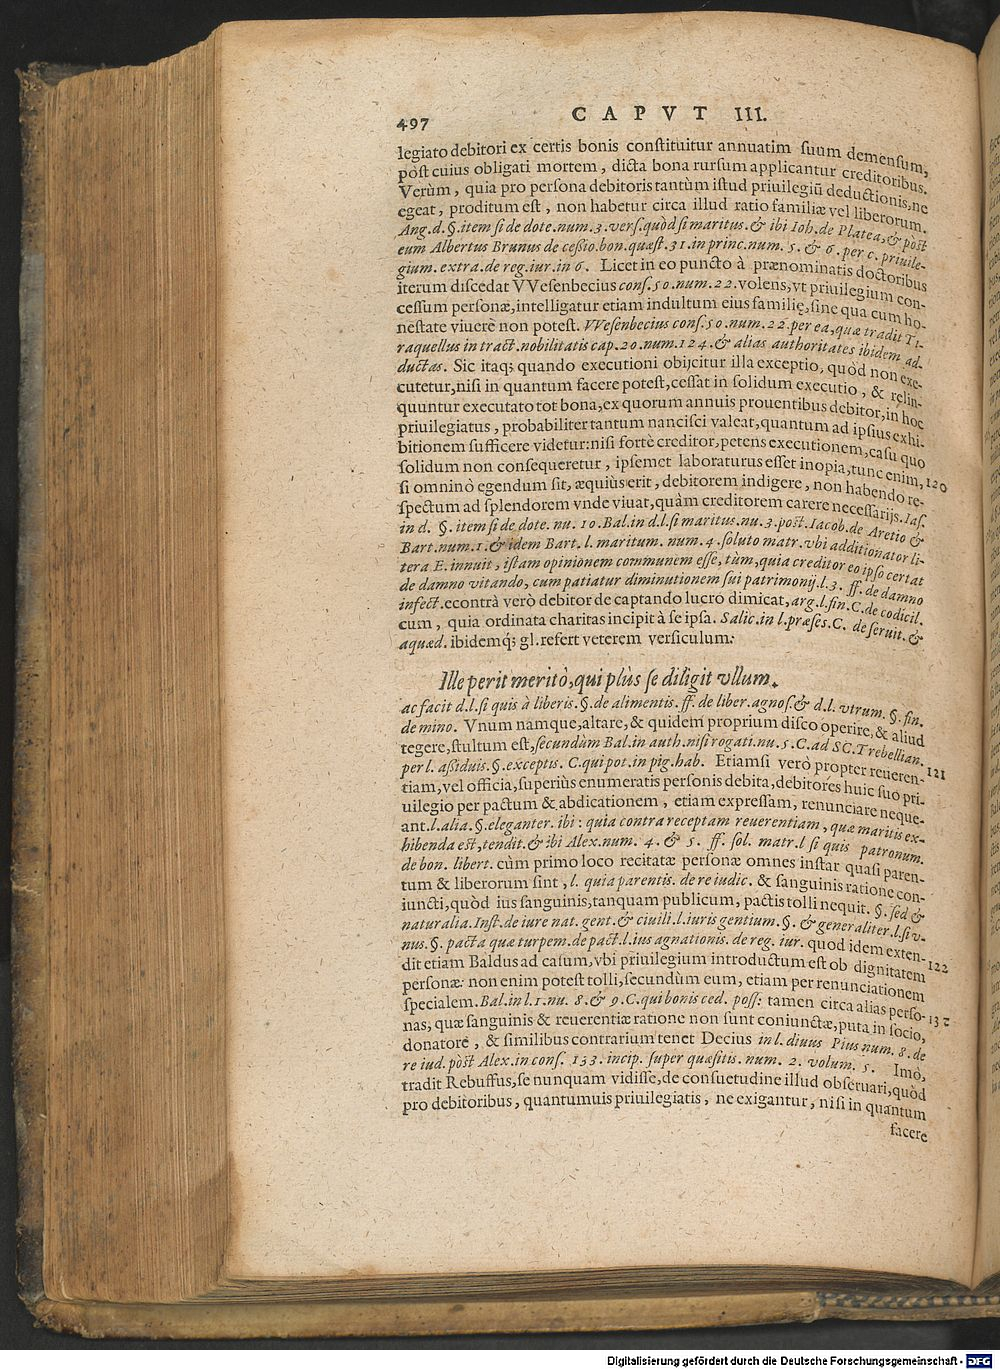 497 CAPVT III.
legiato debitori ex certis bonis constituitur annuatim suum demensum,
pòst cuius obligati mortem, dicta bona rursum applicantur creditoribus.
Verùm, quia pro persona debitoris tantùm istud priuilegiũ deductionis, ne
egeat, proditum est, non habetur circa illud ratio familiæ vel liberorum.
Ang. d. §. item si de dote. num. 3. vers. quòd si maritus. & ibi Ioh. de Platea, & pòst
eum Albertus Brunus de ceßio. bon. quæst. 31. in princ. num. 5. & 6. per c. priuile-
gium. extra. de reg. iur. in 6. Licet in eo puncto à prænominatis doctoribus
iterum discedat VVesenbecius cons. 50. num. 22. volens, vt priuilegium con-
cessum personæ, intelligatur etiam indultum eius familię, sine qua cum ho-
nestate viuere non potest. VVesenbecius cons. 50. num. 22. per ea, quæ tradit Ti-
raquellus in tract. nobilitatis cap. 20. num. 124. & alias authoritates ibidem ad-
ductas. Sic itaq; quando executioni obijcitur illa exceptio, quòd non exe-
cutetur, nisi in quantum facere potest, cessat in solidum executio, & relin-
quuntur executato tot bona, ex quorum annuis prouentibus debitor, in hoc
priuilegiatus, probabiliter tantum nancisci valeat, quantum ad ipsius exhi-
bitionem sufficere videtur: nisi fortè creditor, petens executionem, casu quo
solidum non consequeretur, ipsemet laboraturus esset inopia, tunc enim, 120
si omninò egendum sit, æquiùs erit, debitorem indigere, non habendo re-
spectum ad splendorem vnde viuat, quàm creditorem carere necessarijs. Ias.
in d. §. item si de dote. nu. 10. Bal. in d. l. si maritus. nu. 3. pòst. Iacob. de Aretio &
Bart. num. 1. & idem Bart. l. maritum. num. 4. soluto matr. vbi additionator li-
tera E. innuit, istam opinionem communem esse, tùm, quia creditor eo ipso certat
de damno vitando, cum patiatur diminutionem sui patrimonij. l. 3. ff. de damno
infect. econtrà verò debitor de captando lucro dimicat, arg. l. fin. C. de codicil.
cum, quia ordinata charitas incipit à se ipsa. Salic. in l. præses. C. de seruit. &
aquæd. ibidemq́; gl. refert veterem versiculum:
Ille perit meritò, qui plùs se diligit vllum.
ac facit d. l. si quis à liberis. §. de alimentis. ff. de liber. agnos. & d. l. vtrum. §. fin.
de mino. Vnum namque, altare, & quidem proprium disco operire, & aliud
tegere, stultum est, secundùm Bal. in auth. nisi rogati. nu. 5. C. ad SC. Trebellian.
per l. aßiduis. §. exceptis. C. qui pot. in pig. hab. Etiamsi verò propter reueren- 121
tiam, vel officia, superiùs enumeratis personis debita, debitores huic suo pri-
uilegio per pactum & abdicationem, etiam expressam, renunciare neque-
ant. l. alia. §. eleganter. ibi: quia contra receptam reuerentiam, quæ maritis ex-
hibenda est, tendit. & ibi Alex. num. 4. & 5. ff. sol. matr. l si quis patronum.
de bon. libert. cùm primo loco recitatæ personæ omnes instar quasi paren-
tum & liberorum sint, l. quia parentis. de re iudic. & sanguinis ratione con-
iuncti, quòd ius sanguinis, tanquam publicum, pactis tolli nequit. §. sed &
naturalia. Inst. de iure nat. gent. & ciuili. l. iuris gentium. §. & generaliter. l. si v-
nus. §. pacta quæ turpem. de pact. l. ius agnationis. de reg. iur. quod idem exten-
dit etiam Baldus ad casum, vbi priuilegium introductum est ob dignitatem 122
personæ: non enim potest tolli, secundùm eum, etiam per renunciationem
specialem. Bal. in l. 1. nu. 8. & 9. C. qui bonis ced. poss: tamen circa alias perso- 132
nas, quæ sanguinis & reuerentiæ ratione non sunt coniunctæ, puta in socio,
donatore, & similibus contrarium tenet Decius in l. diuus Pius num. 8. de
re iud. pòst Alex. in cons. 133. incip. super quæsitis. num. 2. volum. 5. Imò,
tradit Rebuffus, se nunquam vidisse, de consuetudine illud obseruari, quòd
pro debitoribus, quantumuis priuilegiatis, ne exigantur, nisi in quantum
facere
Digitalisierung gefördert durch die Deutsche Forschungsgemeinschaft - DFG